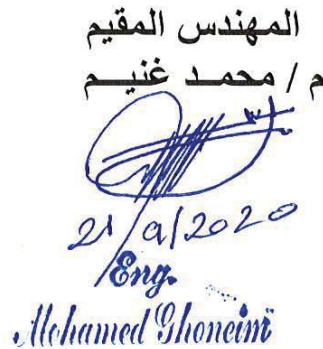 المهندس المقيم
م / محمد غنيم
21/9/2020
Eng.
Mohamed Ghoneim